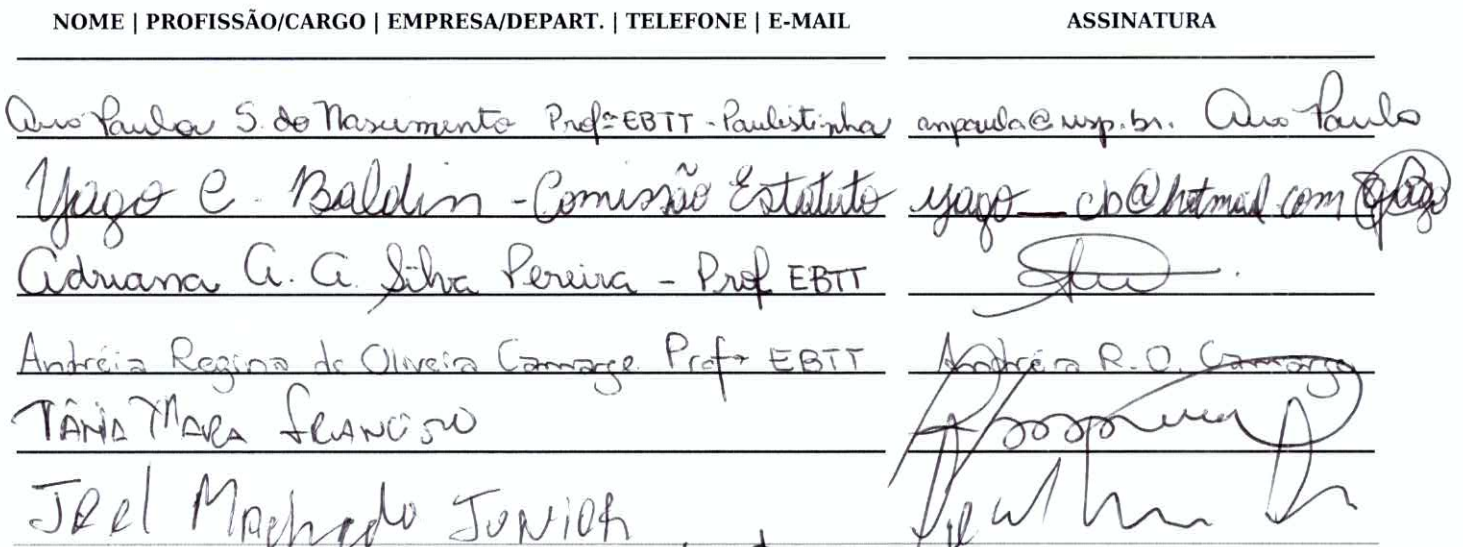 NOME | PROFISSÃO/CARGO | EMPRESA/DEPART. | TELEFONE | E-MAIL ASSINATURA
Ana Paula S. do Nascimento Profª EBTT - Paulistinha anpaula@usp.br. Ana Paula
Yago C. Baldin - Comissão Estatuto yago_cb@hotmail.com Yago
Adriana A. A. Silva Pereira - Prof EBTT
Andréia Regina de Oliveira Camargo Profª EBTT Andréia R. O. Camargo
TÂNIA MARA FRANCISCO
Joel Machado JUNIOR